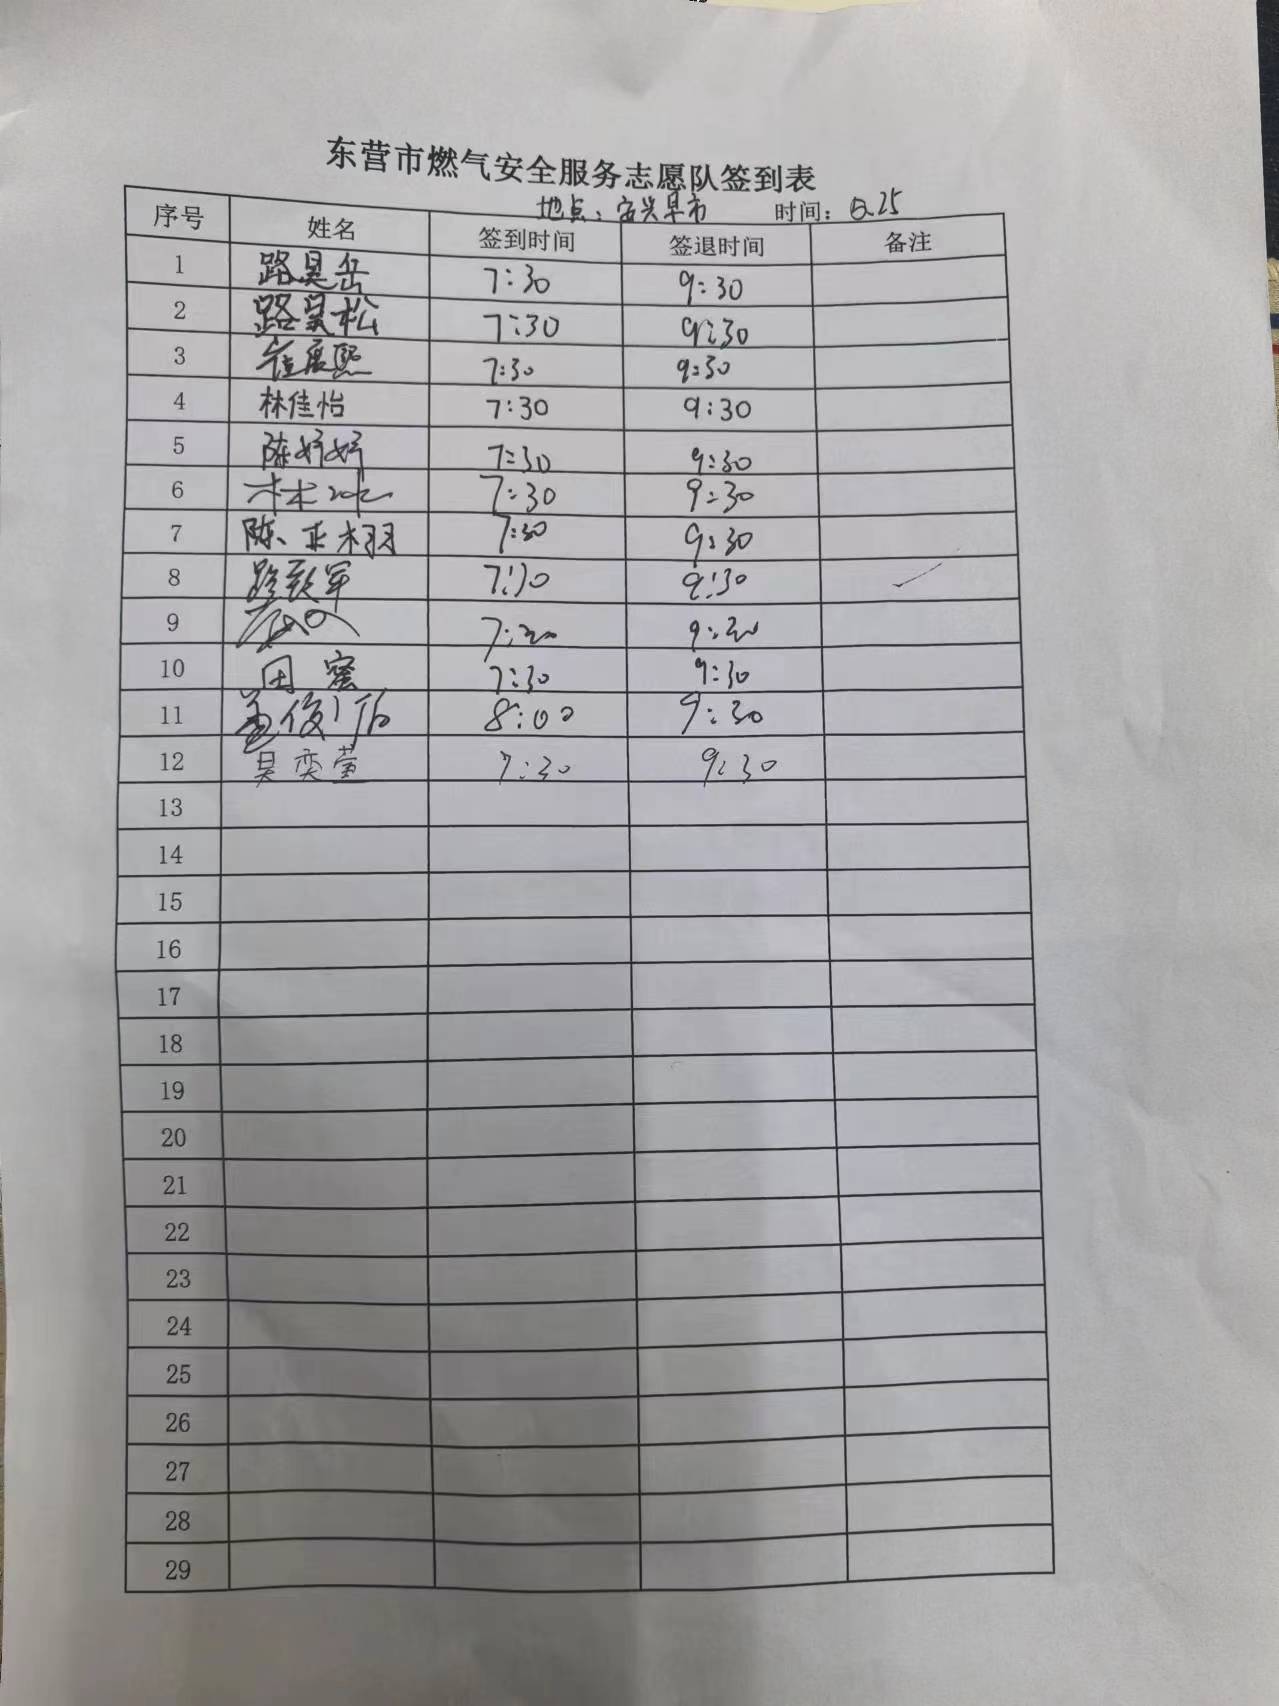 东营市燃气安全服务志愿队签到表
地点：安兴早市 时间：5.25
序号 姓名 签到时间 签退时间 备注
1 路昊岳 7:30 9:30
2 路昊松 7:30 9:30
3 崔展熙 7:30 9:30
4 林佳怡 7:30 9:30
5 陈妤妤 7:30 9:30
6 7:30 9:30
7 陈正栩 7:30 9:30
8 7:30 9:30 ✓
9 7:30 9:30
10 田蜜 7:30 9:30
11 8:00 9:30
12 吴奕莹 7:30 9:30
13
14
15
16
17
18
19
20
21
22
23
24
25
26
27
28
29